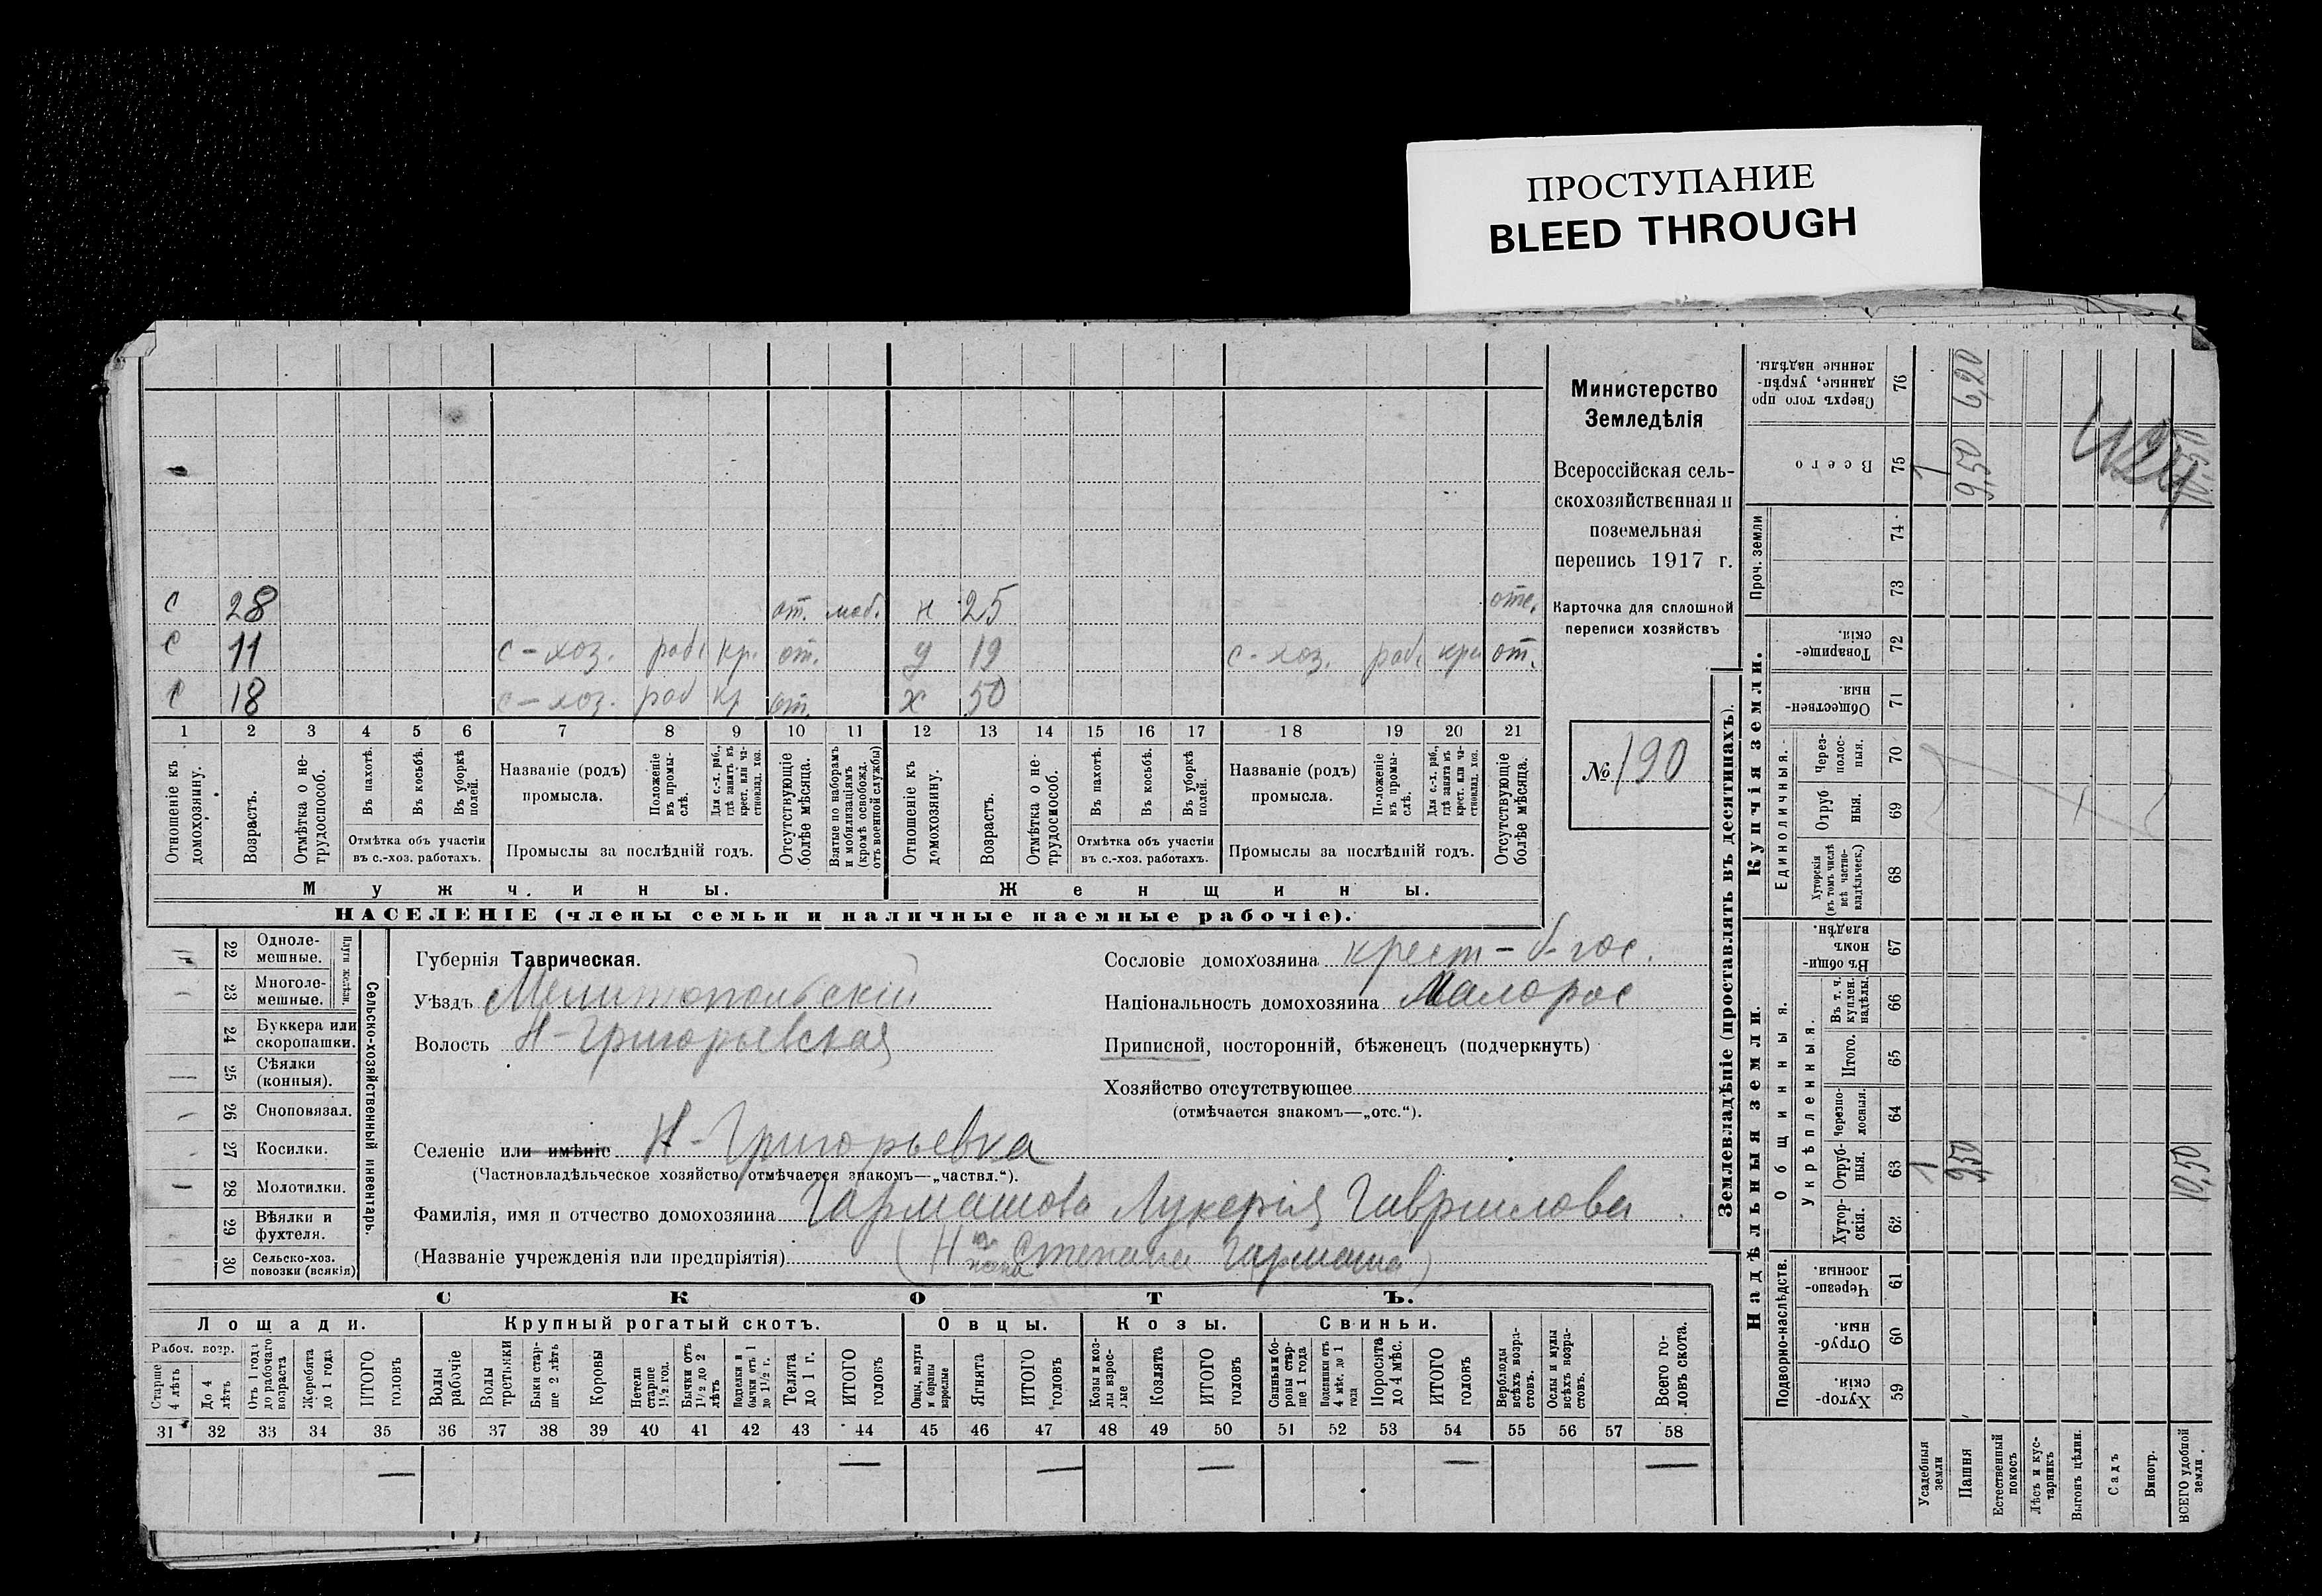 ПРОСТУПАНИЕ
BLEED THROUGH
Министерство
Земледѣлія
Всероссійская сель-
скохозяйственная и
поземельная
перепись 1917 г.
Карточка для сплошной
переписи хозяйствъ
№ 190
с 28 от. моб. н 25 отс.
с 11 с-хоз. раб. кр. от. д 19 с-хоз. раб. кр. от.
с 18 с-хоз. раб кр от. х 50
1 2 3 4 5 6 7 8 9 10 11 12 13 14 15 16 17 18 19 20 21
Отношеніе къ домохозяину.
Возрастъ.
Отмѣтка о не-трудоспособ.
Въ пахотѣ.
Въ косьбѣ.
Въ уборкѣ полей.
Отмѣтка объ участіи въ с.-хоз. работахъ.
Названіе (родъ) промысла.
Положеніе въ промы-слѣ.
Для с.-х. раб., гдѣ занятъ въ крест. или ча-стновлад. хоз.
Промыслы за послѣдній годъ.
Отсутствующіе болѣе мѣсяца.
Взятые по наборамъ и мобилизаціямъ (кромѣ освобожд. отъ военной службы)
Отношеніе къ домохозяину.
Возрастъ.
Отмѣтка о не-трудоспособ.
Въ пахотѣ.
Въ косьбѣ.
Въ уборкѣ полей.
Отмѣтка объ участіи въ с.-хоз. работахъ.
Названіе (родъ) промысла.
Положеніе въ промы-слѣ.
Для с.-х. раб., гдѣ занята въ крест. или ча-стновлад. хоз.
Промыслы за послѣдній годъ.
Отсутствующіе болѣе мѣсяца.
Мужчины. Женщины.
НАСЕЛЕНІЕ (члены семьи и наличные наемные рабочіе).
Сельско-хозяйственный инвентарь.
Плуги желѣзн.
22 Одноле-мешные.
23 Многоле-мешные.
24 Буккера или скоропашки.
25 Сѣялки (конныя).
26 Сноповязал.
27 Косилки.
28 Молотилки.
29 Вѣялки и фухтеля.
30 Сельско-хоз. повозки (всякія)
Губернія Таврическая.
Уѣздъ Мелитопольскій
Волость Н-Григорьевская
Сословіе домохозяина крест-б-гос.
Національность домохозяина Малорос
Приписной, посторонній, бѣженецъ (подчеркнуть)
Хозяйство отсутствующее
(отмѣчается знакомъ—„отс.“).
Селеніе или имѣніе Н-Григорьевка
(Частновладѣльческое хозяйство отмѣчается знакомъ—„частвл.“).
Фамилія, имя и отчество домохозяина Гармашова Лукерія Гаврилова
(Названіе учрежденія или предпріятія) Степана Гармаша)
СКОТЪ.
Лошади. Крупный рогатый скотъ. Овцы. Козы. Свиньи.
Рабоч. возр.
Старше 4 лѣтъ
До 4 лѣтъ
Отъ 1 года до рабочаго возраста
Жеребята до 1 года
ИТОГО головъ
Волы рабочіе
Волы третьяки
Быки стар-ше 2 лѣтъ
Коровы
Нетели старше 1½ год.
Бычки отъ 1½ до 2 лѣтъ
Подтелки и бычки отъ 1 до 1½ г.
Телята до 1 г.
ИТОГО головъ
Овцы, валухи и бараны взрослые
Ягнята
ИТОГО головъ
Козы и коз-лы взрос-лые
Козлята
ИТОГО головъ
Свиньи и бо-ровы стар-ше 1 года
Подсвинки отъ 4 мѣс. до 1 года
Поросята до 4 мѣс.
ИТОГО головъ
Верблюды всѣхъ возра-стовъ.
Ослы и мулы всѣхъ возра-стовъ.
Всего го-ловъ скота.
31 32 33 34 35 36 37 38 39 40 41 42 43 44 45 46 47 48 49 50 51 52 53 54 55 56 57 58
— — — — — —
Землевладѣніе (проставлять въ десятинахъ).
Надѣльныя земли. Купчія земли. Проч. земли
Подворно-наслѣдств.
Общинныя.
Укрѣпленныя.
Единоличныя.
59 Хутор-скія.
60 Отруб-ныя.
61 Черезпо-лосныя.
62 Хутор-скія.
63 Отруб-ныя.
64 Черезпо-лосныя.
65 Итого.
66 Въ т. ч. куплен. надѣлы.
67 Въ общи-номъ владѣн.
68 Хуторскія (въ томъ числѣ всѣ частно-владѣльческ.)
69 Отруб ныя.
70 Через-полос-ныя.
71 Обществен-ныя.
72 Товарище-скія.
73
74
75 Всего
76 Сверхъ того про данные, укрѣп-ленные надѣлы.
Усадебныя земли 1 1
Пашня 9,50 9,50 6,20
Естественный покосъ
Лѣсъ и кус-тарникъ
Выгонъ цѣлин.
Садъ
Виногр.
ВСЕГО удобной земли. 10,50